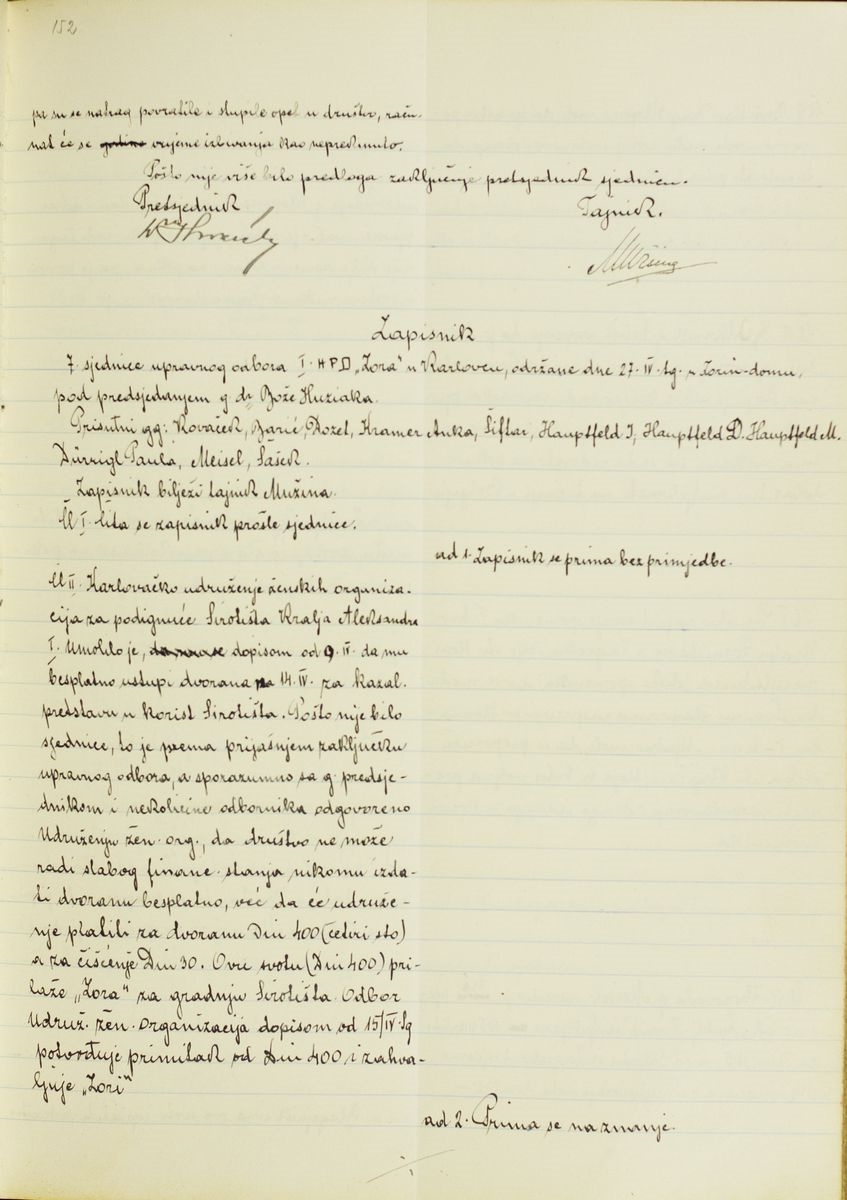 152
pa su se natrag povratile i stupile opet u društvo, raču-
nat će se godine vrijeme izbivanja kao neprekinuto.
Pošto nije više bilo predloga zaključuje pretsjednik sjednicu.
Pretsjednik
Tajnik.
Zapisnik
7. sjednice upravnog odbora I. HPD „Zora" u Karlovcu, održane dne 27. IV. tg. u Zorin-domu,
pod predsjedanjem g dr. Bože Huziaka.
Prisutni gg: Kovaček, Barić, Dozet, Kramer Anka, Šiftar, Hauptfeld I, Hauptfeld D. Hauptfeld M.
Dürrigl Paula, Meisel, Sašek.
Zapisnik bilježi tajnik Mužina.
Ad I. čita se zapisnik prošle sjednice.
ad 1. Zapisnik se prima bez primjedbe.
Ad II. Karlovačko udruženje ženskih organiza-
cija za podignuće Sirotišta Kralja Aleksandra
I. Umolilo je, dopisom od 9. IV. da mu
besplatno ustupi dvorana na 14. IV. za kazal.
pretstavu u korist Sirotišta. Pošto nije bilo
sjednice, to je prema prijašnjem zaključku
upravnog odbora, a sporazumno sa g. predsje-
dnikom i nekolicine odbornika odgovoreno
Udruženju žen. org., da društvo ne može
radi slabog financ. stanja nikomu izda-
ti dvoranu besplatno, već da će udruže-
nje platiti za dvoranu Din 400 (četiri sto)
a za čišćenje Din 30. Ovu svotu (Din 400) pri-
laže „Zora" za gradnju Sirotišta. Odbor
Udruž. žen. Organizacija dopisom od 15/IV. tg
potvrđuje primitak od Din 400 i zahva-
ljuje „Zori"
ad 2. Prima se na znanje.